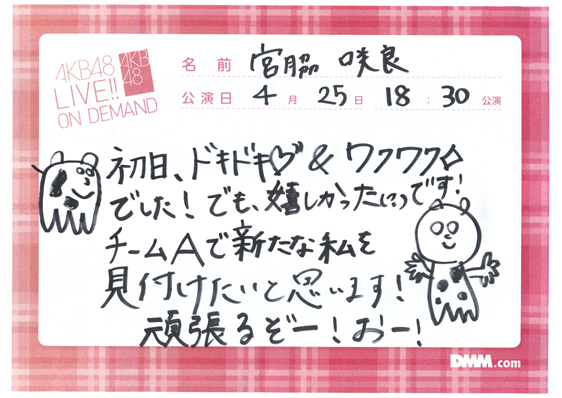 AKB48
LIVE!!
ON DEMAND
AKB
48
名前 宮脇 咲良
公演日 4月 25日 18:30 公演
初日、ドキドキ♡ & ワクワク☆
でした!でも、嬉しかったです!
チームAで新たな私を
見付けたいと思います!
頑張るぞー!おー!
DMM.com